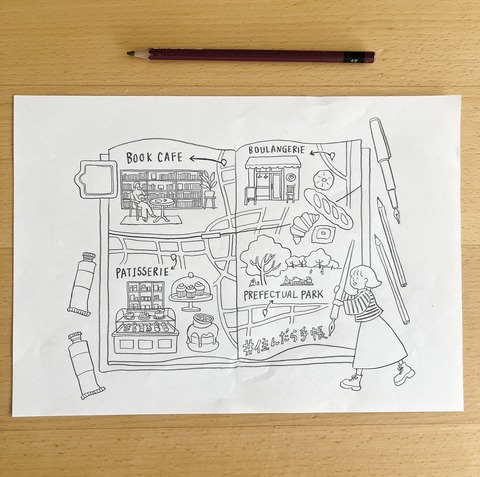 BOOK CAFE
BOULANGERIE
PATISSERIE
PREFECTUAL PARK
#住んだら手帳
4B